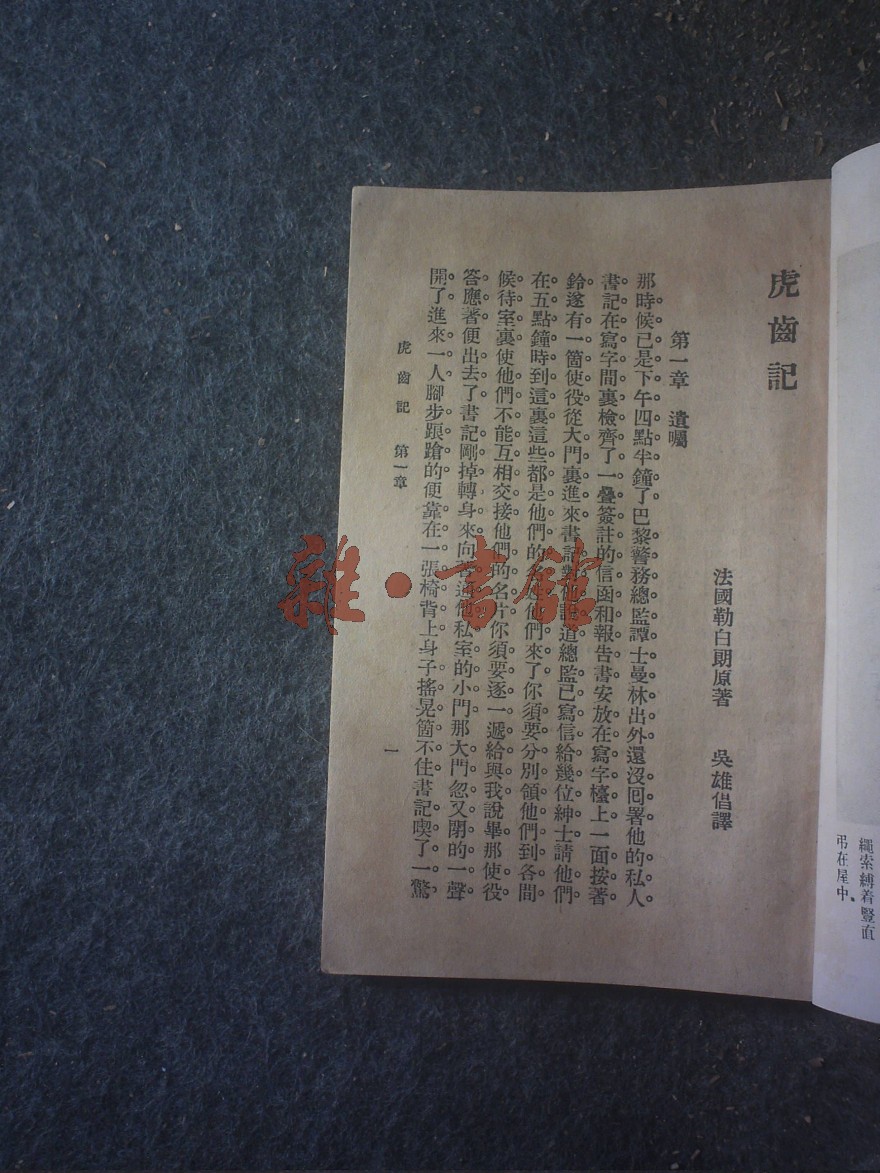 繩索縛着豎直
弔在屋中。
虎齒記
法國勒白朗原著 吳雄倡譯
第一章 遺囑
那時候已是下午四點半鐘了巴黎警務總監譚士曼林出外還沒囘署他的私人
書記在寫字間裏檢齊了一疊簽註的信函和報告書安放在寫字檯上一面按著
鈴遂有一箇使役從大門裏進來書記對他說道總監已寫信給幾位紳士請他們
在五點鐘時到這裏這些都是他們的他們來了你須要分別領他們到各間
候待室裏使他們不能互相交接他們的名片你須要逐一遞給與我說畢那使役
答應著便出去了書記剛掉轉身來向著通他私室的小門那大門忽又閉的一聲
開了進來一人腳步踉蹌的便靠在一張椅背上身子搖晃箇不住書記喫了一驚
虎齒記 第一章
一
雜·書館